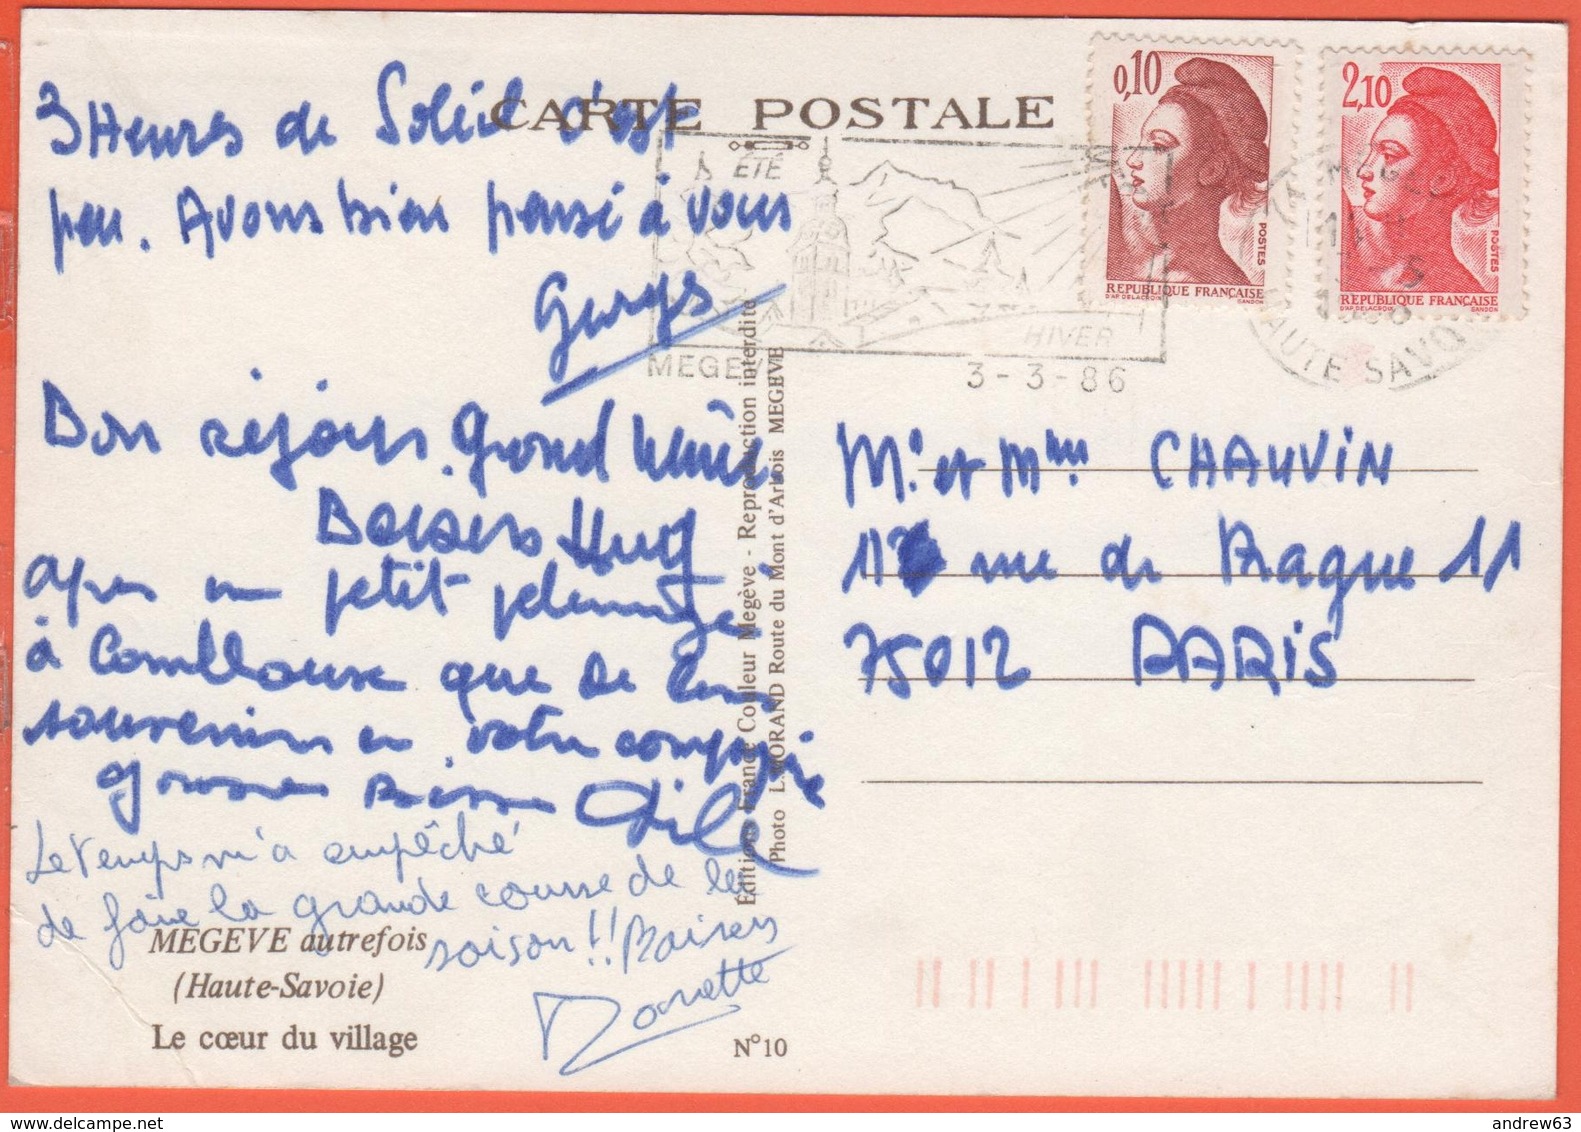 CARTE POSTALE
3 Heures de Soleil c'est
peu. Avons bien pensé à vous
Georges
Bon séjour. Grand Mère
Baisers Hug
après un petit plongé
à Combloux que de bons
souvenirs en votre compagnie
grosses bises
Le temps m'a empêché
de faire la grande course de la
saison!! Baisers
MEGEVE autrefois
(Haute-Savoie)
Le cœur du village
N° 10
Éditions France Couleur Megève - Reproduction interdite
Photo L. MORAND Route du Mont d'Arbois MEGEVE
ÉTÉ
HIVER
MEGEVE
3-3-86
HAUTE SAVOIE
0,10
POSTES
REPUBLIQUE FRANÇAISE
D'AP. DELACROIX GANDON
2,10
POSTES
REPUBLIQUE FRANÇAISE
D'AP. DELACROIX GANDON
Mr. et Mme CHAUVIN
rue de Prague 11
75012 PARIS
andrew63